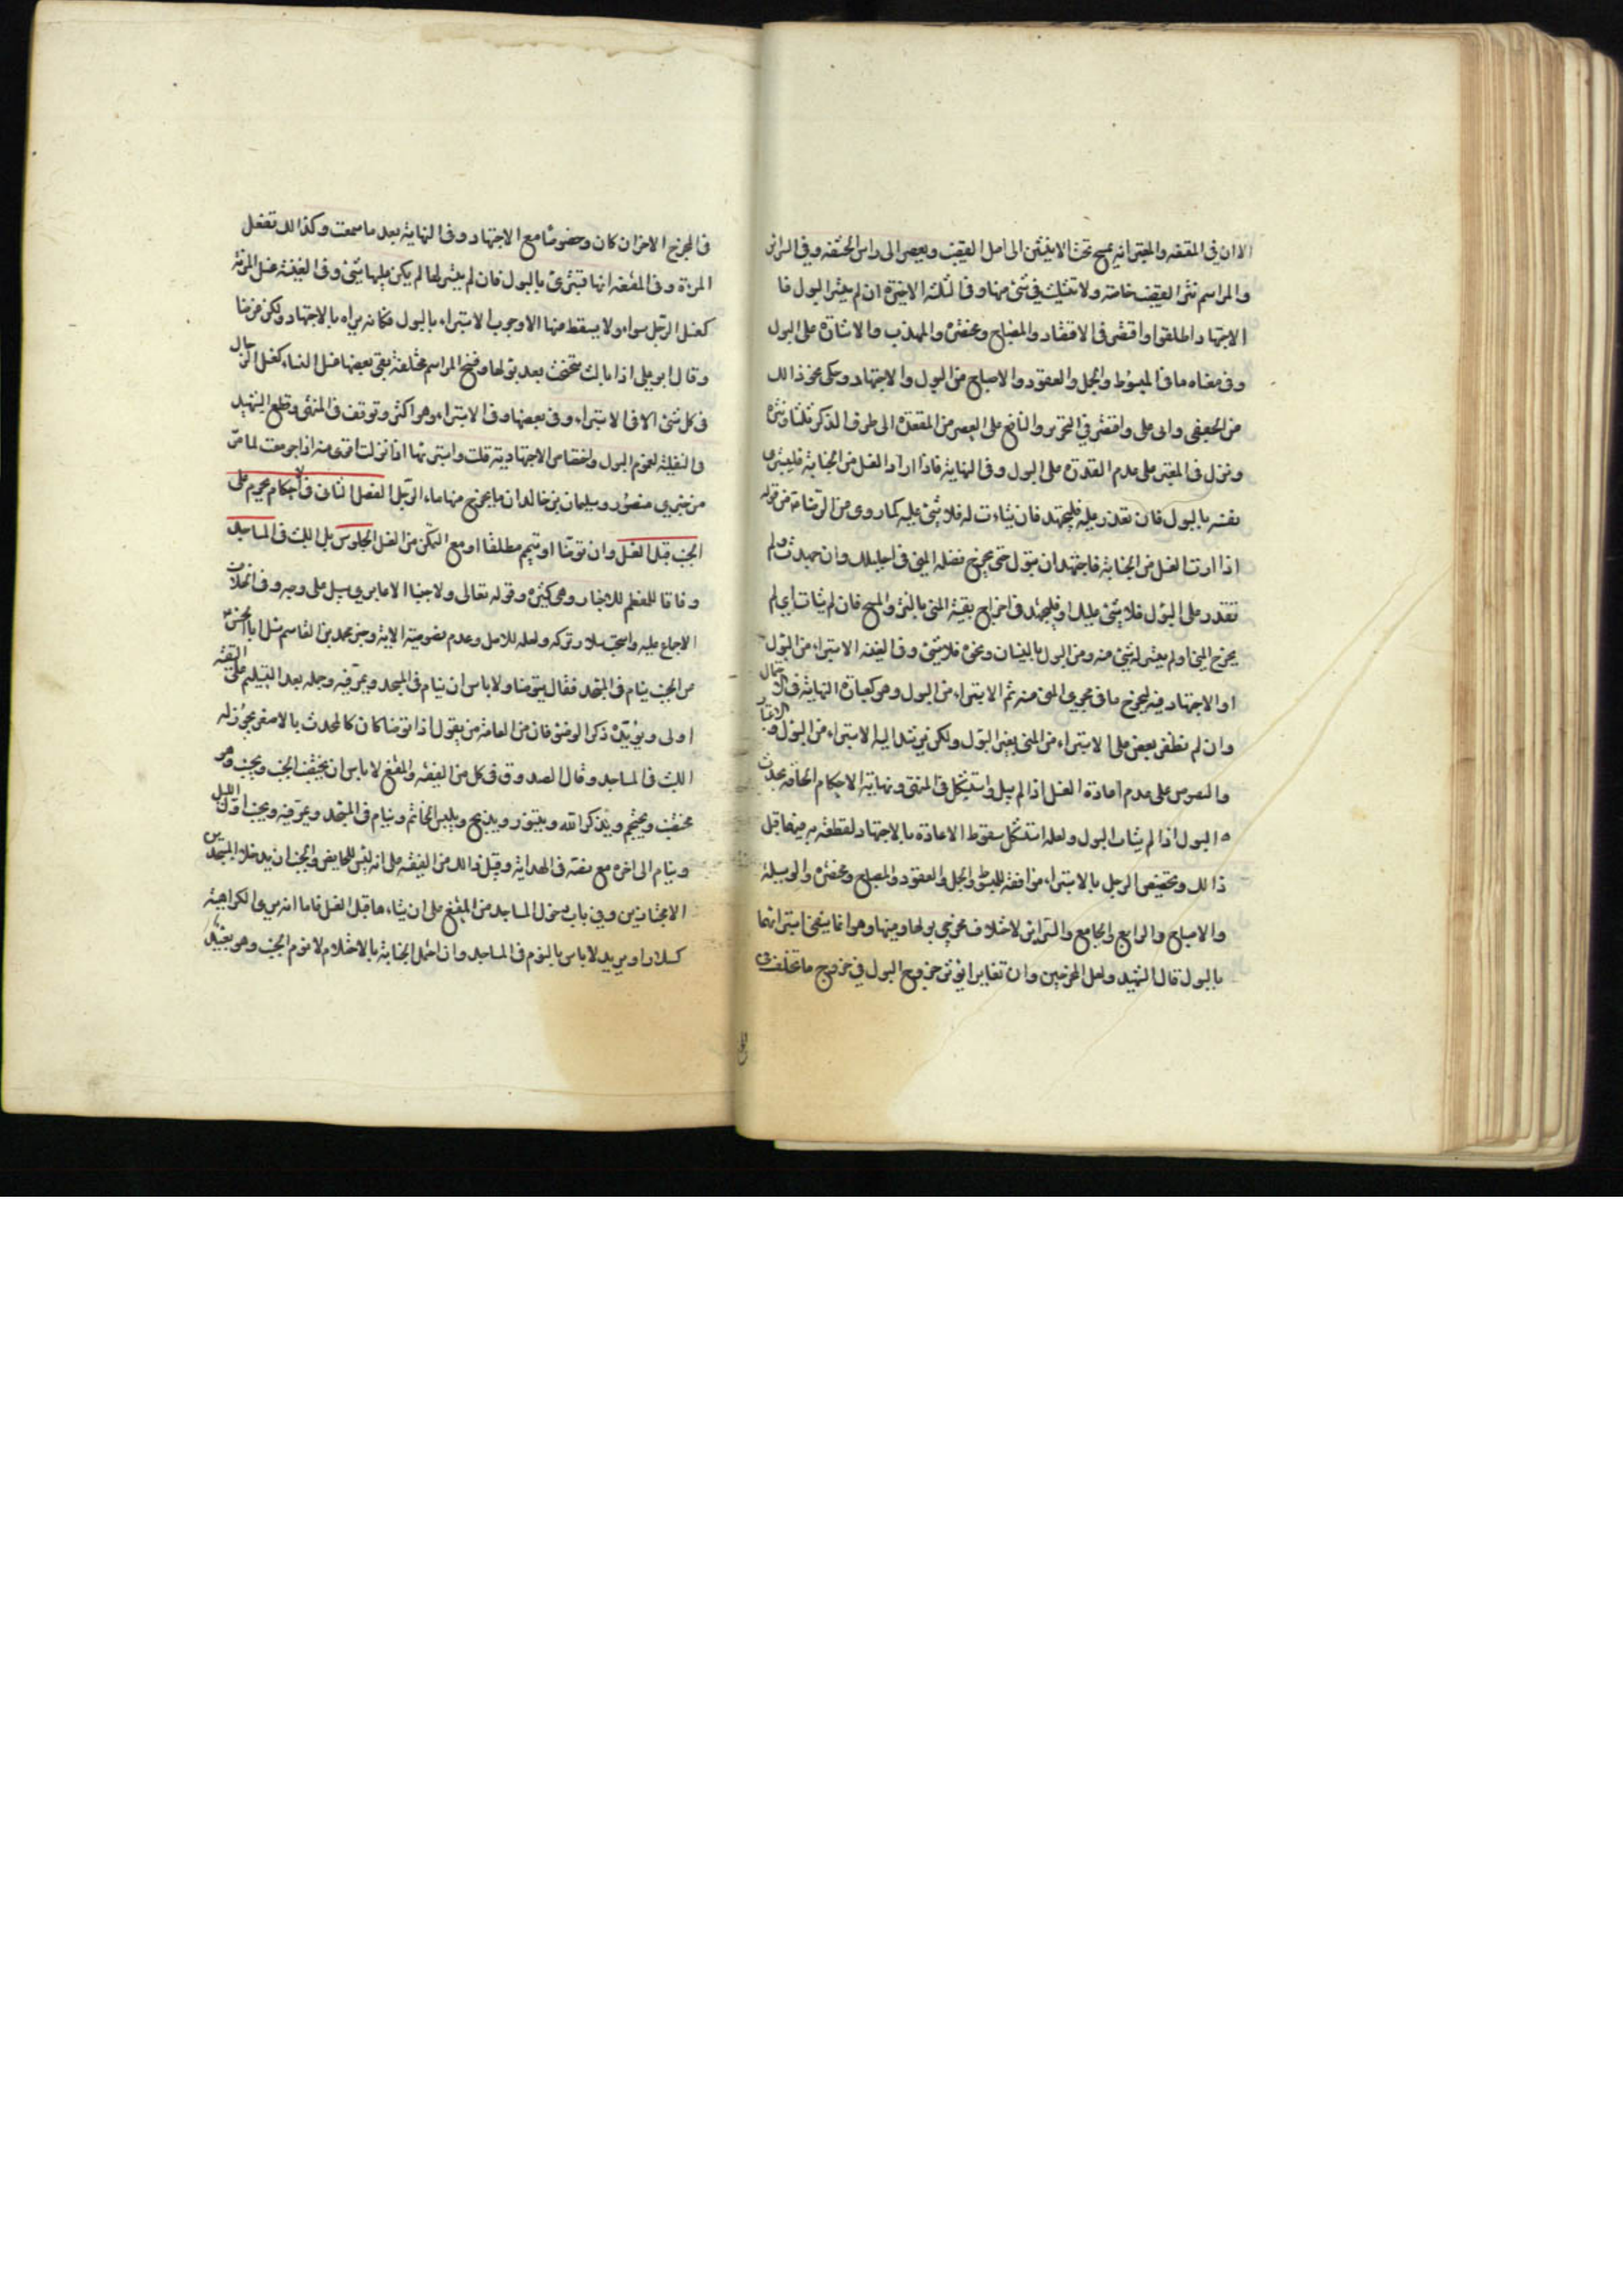 الا ان في المقنعه والمعتبر انه يمسح تحت الانثيين الى اصل القضيب ويعصر الى راس الحشفه وفي السرائر
والمراسم نتر القضيب خاصة ولا تثليث في شئ منها وفي الثلثة الاخيرة ان لم يتيسر البول فا
الاجتهاد اطلقوا واقتصر في الاقتصاد والمصباح ومختصره والمهذب والاشارة على البول
وفي معناه ما في المبسوط والجمل والعقود والاصباح من البول والاجتهاد وحكى نحو ذالك
من الجعفي وابى على واقتصر في التحرير والنافع على العصر من المقعدة الى طرف الذكر ثلثا ونتره
ونزل في المعتبر على عدم القدرة على البول وفي الهداية فاذا اراد الغسل من الجنابة فليستبرئ
نفسه بالبول فان تعذر عليه فليجتهد فان شاءت له فلا شئ عليه كما روى من الرضا من قوله
اذا اردت الغسل من الجنابة فاجتهد ان تبول حتى يخرج فضلة المنى في احليلك وان جهدت ولم
تقدر على البول فلا شئ عليك او فليجتهد في اخراج بقية المنى بالنتر والمسح فان لم يتات اي لم
يخرج المنى او لم يتيسر له شئ منه ومن البول بالنسيان ونحوه فلا شئ وفي الغنيه الاستبراء من البول
او الاجتهاد فيه ليخرج ما في مجرى المنى منه ثم الاستبراء من البول وهو كعبارة النهاية في الاحتمال
وان لم نظفر بعض على الاستبراء من المنى بغير البول ولكن يرشد اليه الاستبراء من البول والاعتبار
والنصوص على عدم اعادة الغسل اذا لم يبل واستشكل في المنتهى ونهاية الاحكام الحاقه بحدث
البول اذا لم يتات البول ولعله استشكل سقوط الاعادة بالاجتهاد لقطعه به فيهما قبل
ذالك وتخصيص الرجل بالاستبراء موافقة للمبسوط والجمل والعقود والمصباح ومختصره والوسيلة
والاصباح والرابع والجامع والسرائر لاختلاف مخرجى بولها ومنيها وهو انما ينفى استبرائها
بالبول قال الشهيد ولعل المخرجين وان تغايرا يؤثر خروج البول في خروج ما تخلف
في المخرج الاخر ان كان وخصوصا مع الاجتهاد وفي النهاية بعد ما سمعت وكذالك تفعل
المرءة وفي المقنعه انها تستبرئ بالبول فان لم يتيسر لها لم يكن عليها شئ وفي الغنية غسل المرءة
كغسل الرجل سواء ولا يسقط عنها الا وجوب الاستبراء بالبول فكانه يراه بالاجتهاد ولكن فرضا
وقال ابو على اذا بالت تنحنحت بعد بولها ونسخ المراسم مختلفة ففى بعضها غسل النساء كغسل الرجال
في كل شئ الا في الاستبراء وفي بعضها وفي الاستبراء وهو اكثر وتوقف في المنتهى وقطع الشهيد
والنفلية لعموم البول واختصاص الاجتهاد به قلت واستبرائها اذا نزلت اقوى منه اذا جومعت لما مر
من خبري منصور وسليمان بن خالد ان ما يخرج منها ماء الرجل الفصل الثانى في الاحكام يحرم على
الجنب قبل الغسل وان توضا او تيمم مطلقا او مع التمكن من الغسل الجلوس بل اللبث في المساجد
وفاقا للمعظم للاخبار وهى كثيرة وقوله تعالى ولا جنبا الا عابرى سبيل على وجه وفي الخلاف
الاجماع عليه واستحب سلار تركه ولعله للاصل وعدم نصوصية الاية وخبر محمد بن القاسم سئل ابا الحسن
من الجنب ينام في المسجد فقال يتوضا ولا باس ان ينام في المسجد ويمر فيه وحمله بعد التسليم على التقية
اولى ويؤيده ذكر الوضوء فان من العامة من يقول اذا توضا كان كالمحدث بالاصغر يجوز له
اللبث في المساجد وقال الصدوق في كل من الفقيه والمقنع لا باس ان يختضب الجنب ويجنب وهو
مختضب ويحتجم ويذكر الله ويتنور ويذبح ويلبس الخاتم وينام في المسجد ويمر فيه ويجنب اول الليل
وينام الى اخره مع نصه في الهداية وقبل ذالك من الفقيه على انه ليس للحايض والجنب ان يدخلا المسجد
الا مجتازين وفي باب دخول المساجد من المقنع على ان يتاهبا قبل الغسل فاما انه يرى الكراهية
كسلار او يريد لا باس بالنوم في المساجد وان احتمل الجنابة بالاحتلام لا نوم الجنب وهو بعيد